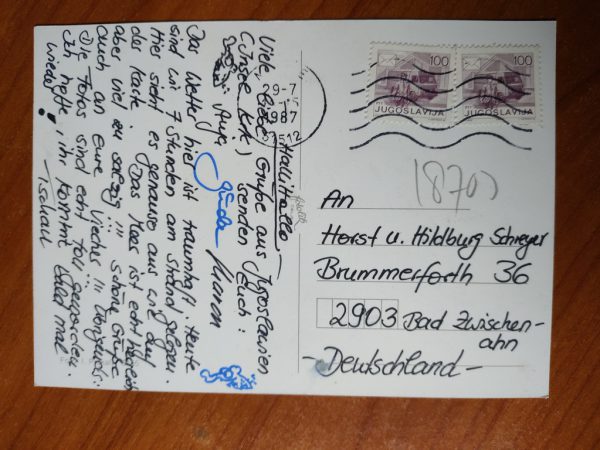 Hallihallo
Viele liebe Grüße aus Jugoslawien
(Insel Krk) senden Euch:
Das Wetter hier ist traumhaft. Heute
sind wir 7 Stunden am Strand gelegen.
Hier sieht es genauso aus wie auf
der Karte. Das Meer ist echt herrlich
aber viel zu salzig!!! Schöne Grüße
auch an Eure Viecher!!!
Die Fotos sind echt toll geworden.
Ich hoffe, ihr kommt bald mal
wieder!
Tschau
29-7
1987
100
JUGOSLAVIJA
100
JUGOSLAVIJA
18703
An
Horst u. Hildburg Schreyer
Brummerforth 36
2903 Bad Zwischen-
ahn
-Deutschland-